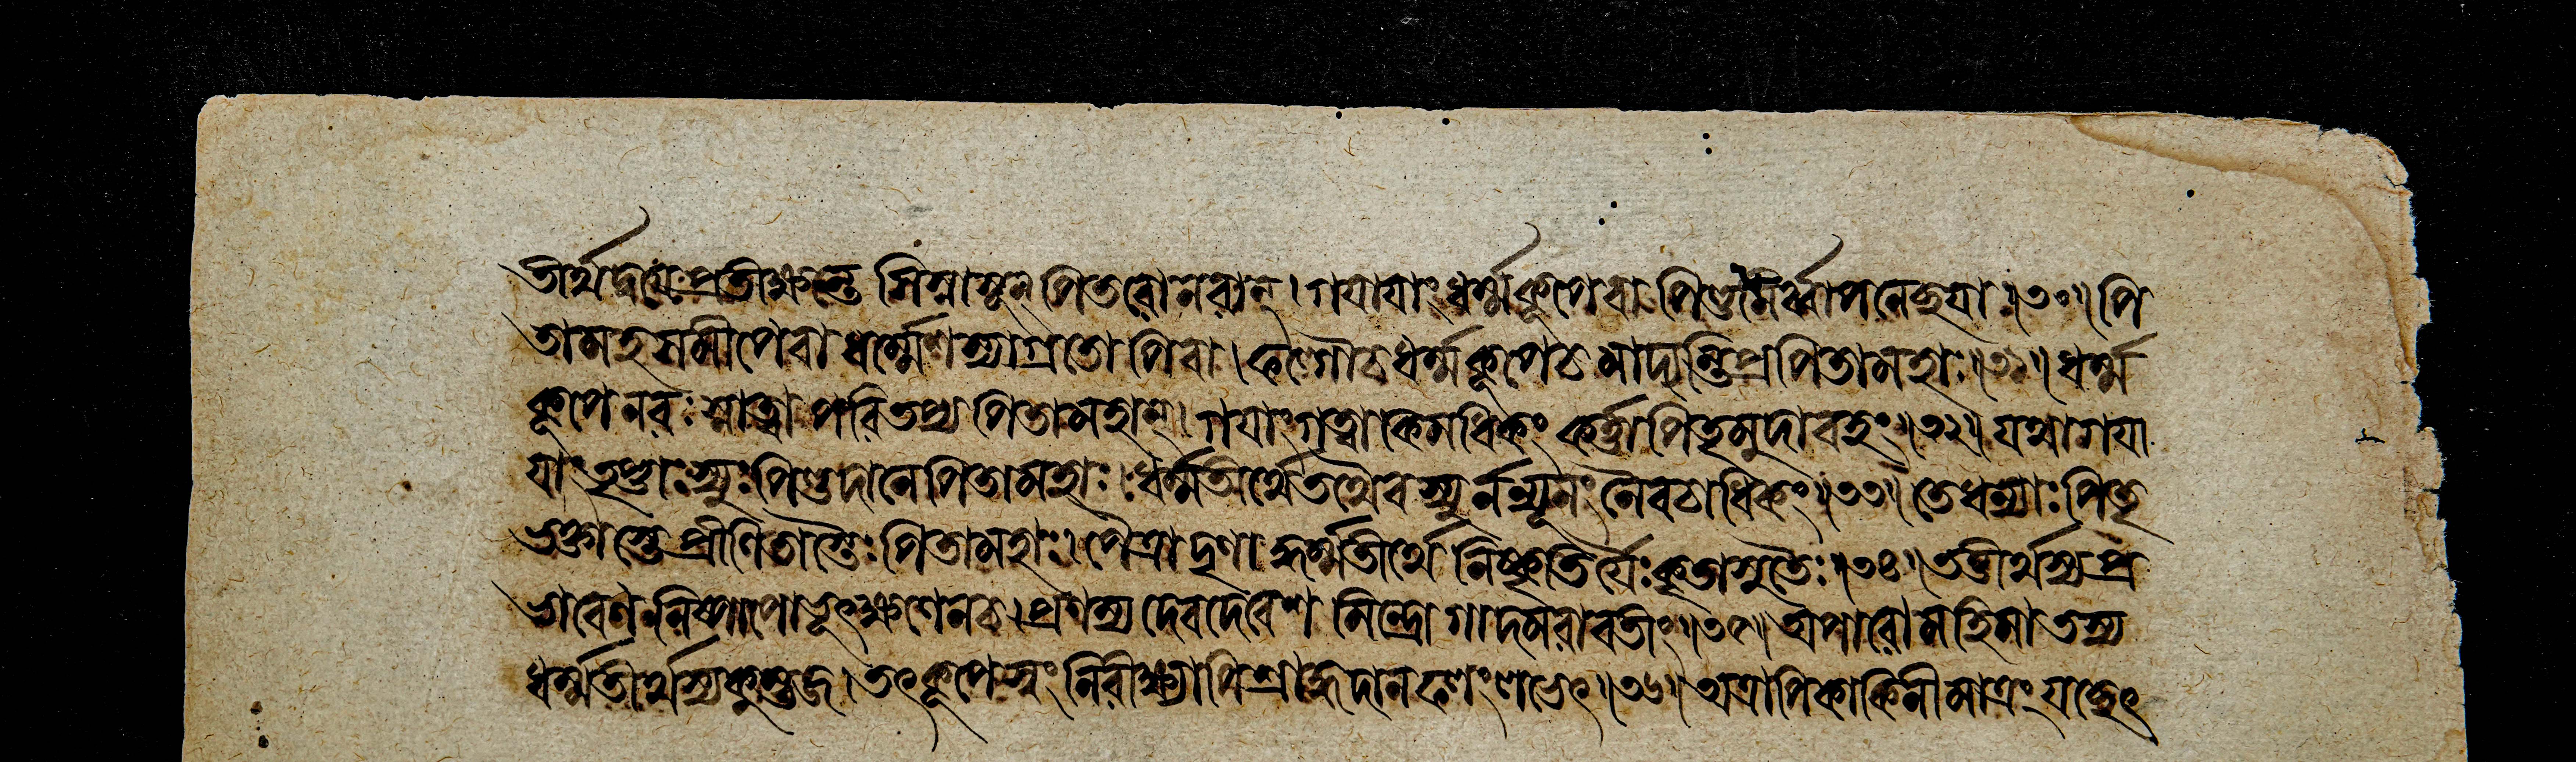 তীর্থদ্বয়ং প্রতীক্ষন্তে সিস্নাসূন্ পিতরো নরান্। গয়ায়াং ধর্ম্মকূপে বা পিণ্ডনির্ব্বাপনেচ্ছয়া॥৩০॥ পি
তামহসমীপে বা ধর্ম্মেশস্যাগ্রতোপি বা। ফল্গৌ চ ধর্ম্মকূপে চ মাদ্যন্তি প্রপিতামহাঃ॥৩১॥ ধর্ম্ম
কূপে নরঃ স্নাত্বা পরিতর্প্য পিতামহান্। গয়াং গত্বা কিমধিকং কর্ত্তা পিতৃমুদাবহং॥৩২॥ যথা গয়া
য়াং তৃপ্তাঃ স্যুঃ পিণ্ডদানে পিতামহাঃ। ধর্ম্মতীর্থে তথৈব স্যুর্ন ন্যূনং নৈব চাধিকং॥৩৩॥ তে ধন্যাঃ পিতৃ
ভক্তাস্তে প্রীণিতাস্তৈঃ পিতামহাঃ। পৈত্রাদৃণাদ্ধর্ম্মতীর্থে নিষ্কৃতির্য্যৈঃ কৃতা সুতৈঃ॥৩৪॥ তত্তীর্থস্য প্র
ভাবেণ নিষ্পাপোভূৎ ক্ষণেন চ। প্রণম্য দেবদেবেশমিন্দ্রোগাদমরাবতীং॥৩৫॥ অপারো মহিমা তস্য
ধর্ম্মতীর্থস্য কুম্ভজ। তৎকূপে স্বং নিরীক্ষ্যাপি শ্রাদ্ধদানফলং লভেৎ॥৩৬॥ অত্রাপি কাকিনীমাত্রং যচ্ছেৎ